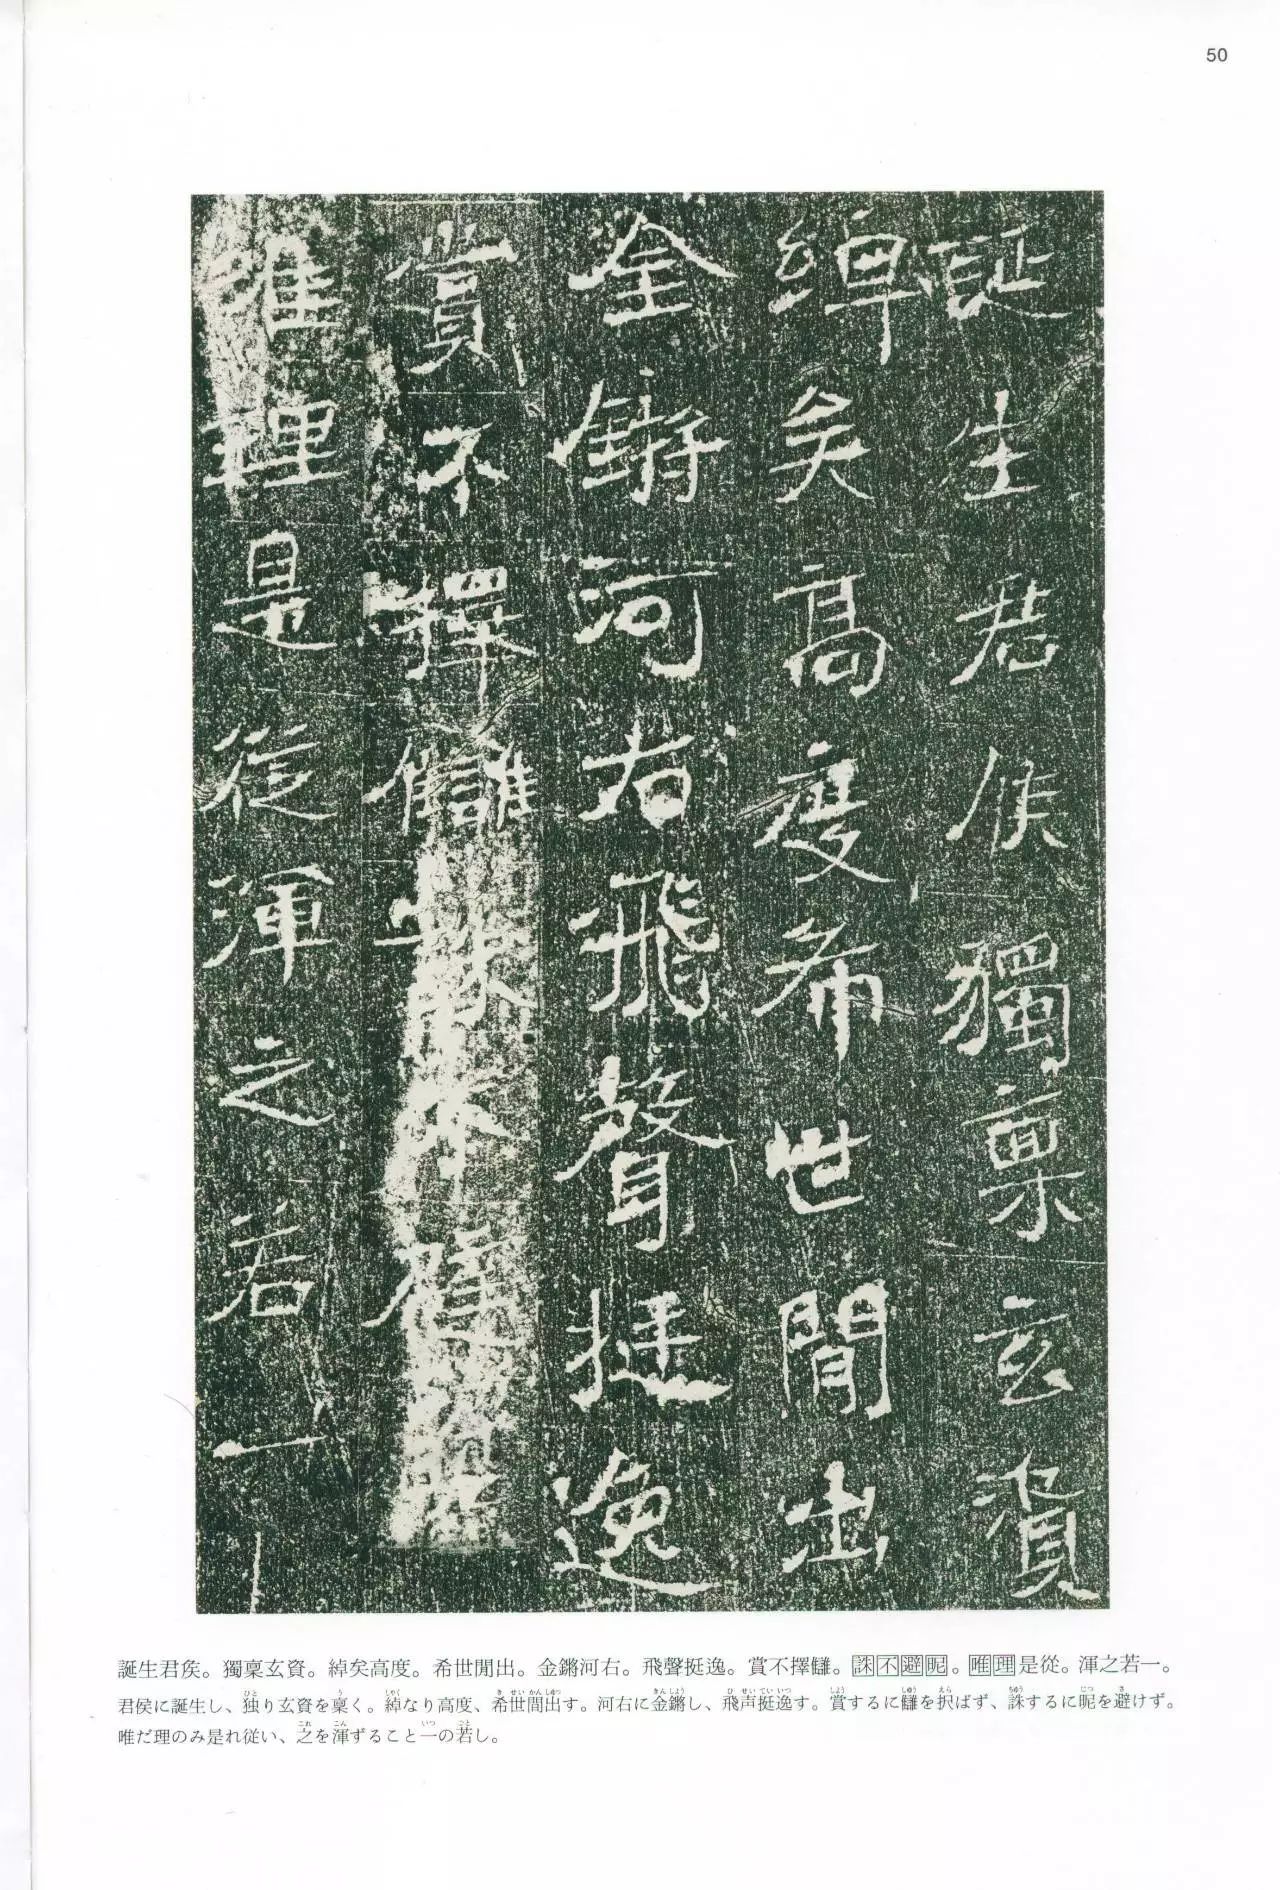 50
誕生君侯獨稟玄資
綽矣高度希世間出
金鏘河右飛聲挺逸
賞不擇讎誅不避昵
唯理是從渾之若一
誕生君矦。獨稟玄資。綽矣高度。希世間出。金鏘河右。飛聲挺逸。賞不擇讎。誅不避昵。唯理是從。渾之若一。
君侯に誕生し、独り玄資を稟く。綽なり高度、希世間出す。河右に金鏘し、飛声挺逸す。賞するに讎を択ばず、誅するに昵を避けず。
唯だ理のみ是れ従い、之を渾ずること一の若し。